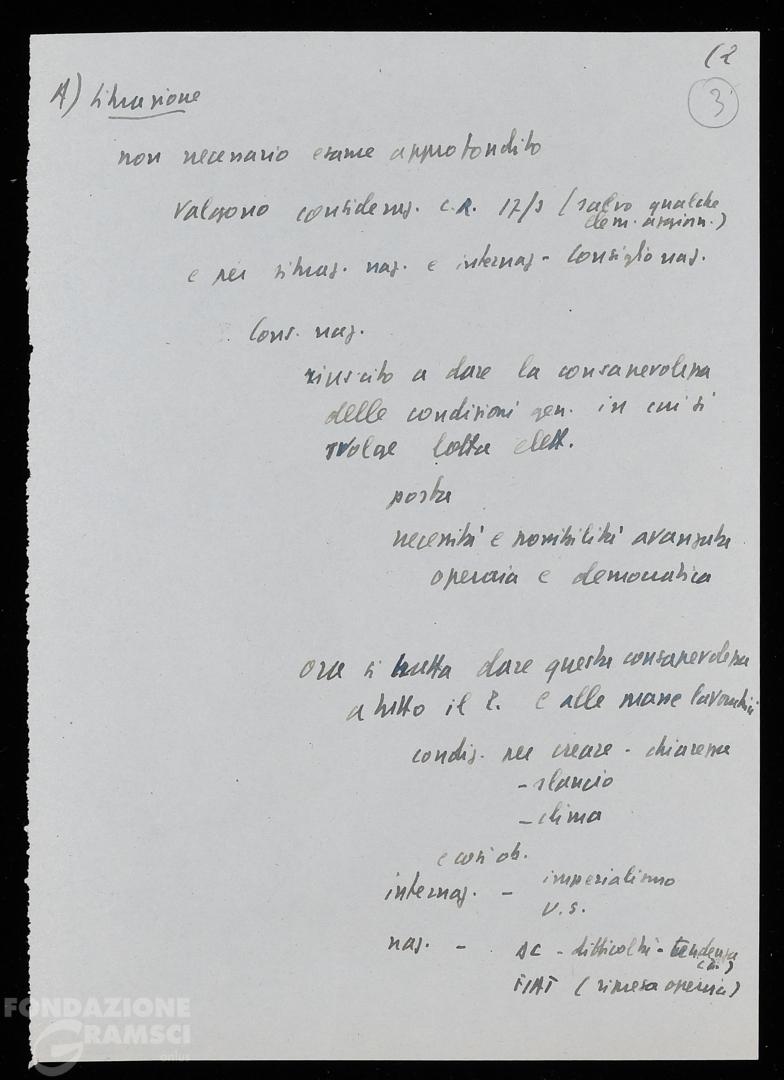 (2
3
A) Situazione
non necessario esame approfondito
Valgono consideraz. C.R. 17/3 (salvo qualche
elem. aggiorn.)
e per situaz. naz. e internaz - Consiglio naz.
Cons. naz.
riuscito a dare la consapevolezza
delle condizioni gen. in cui si
svolge lotta elett.
posta
necessità e possibilità avanzata
operaia e democratica
Ora si tratta dare questa consapevolezza
a tutto il P. e alle masse lavoratrici
condiz. per creare - chiarezza
- slancio
- clima
e così ob.
internaz. - imperialismo
U.S.
naz. - DC - difficoltà - tendenza
FIAT (ripresa operaia)
FONDAZIONE
GRAMSCI
onlus